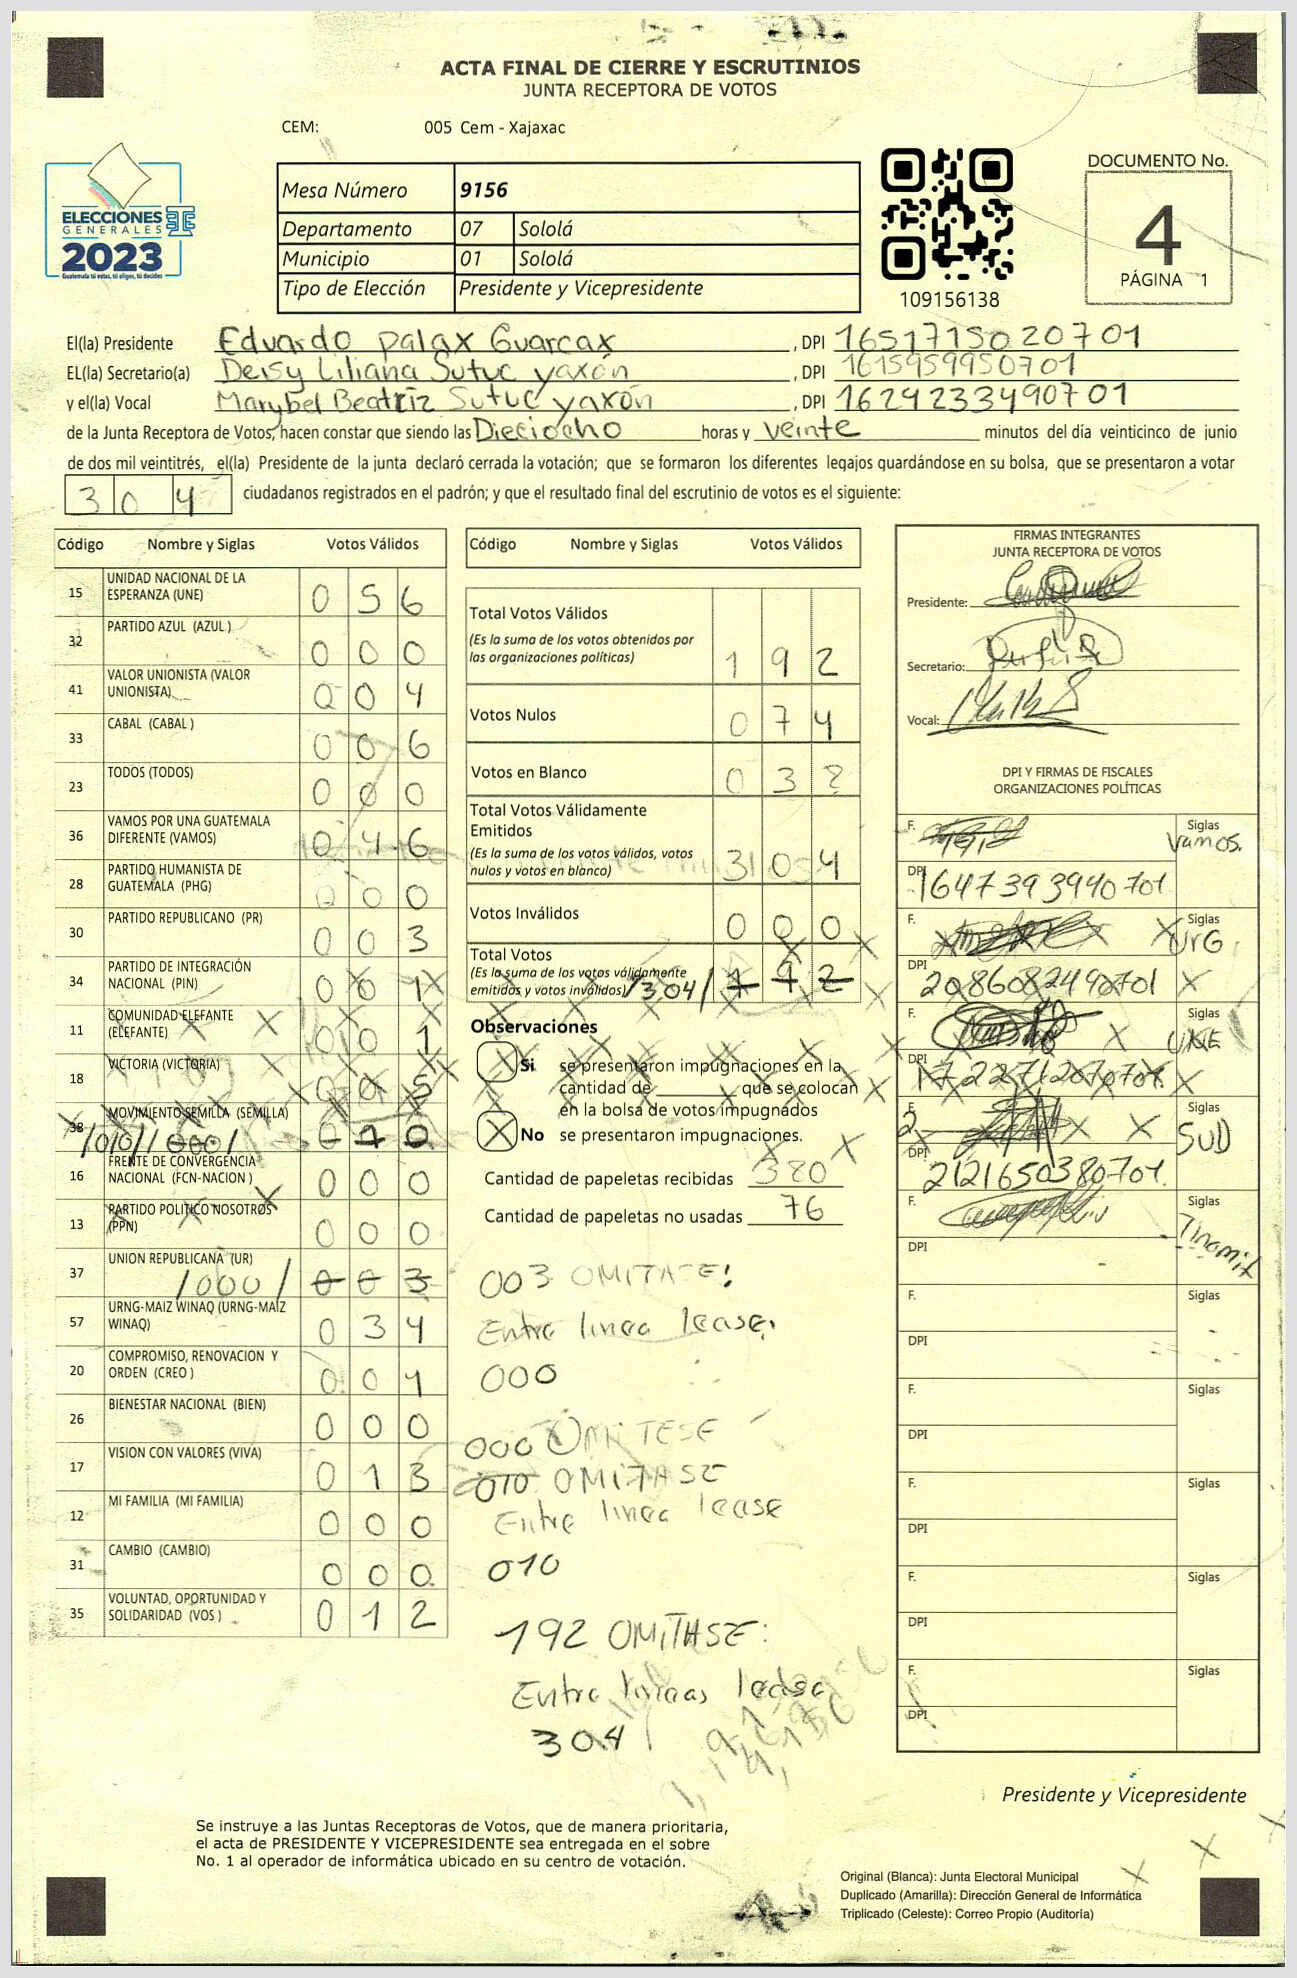 ACTA FINAL DE CIERRE Y ESCRUTINIOS
JUNTA RECEPTORA DE VOTOS
CEM: 005 Cem - Xajaxac
ELECCIONES
GENERALES
2023
Guatemala tú votas, tú eliges, tú decides
Mesa Número 9156
Departamento 07 Sololá
Municipio 01 Sololá
Tipo de Elección Presidente y Vicepresidente
109156138
DOCUMENTO No.
4
PÁGINA 1
El(la) Presidente Eduardo Palax Guarcax, DPI 1651715020701
EL(la) Secretario(a) Deisy Liliana Sutuc yaxón, DPI 1615959950701
y el(la) Vocal Marybel Beatriz Sutuc yaxón, DPI 1624233490701
de la Junta Receptora de Votos, hacen constar que siendo las Dieciocho horas y veinte minutos del día veinticinco de junio
de dos mil veintitrés, el(la) Presidente de la junta declaró cerrada la votación; que se formaron los diferentes legajos quardándose en su bolsa, que se presentaron a votar
3 0 4 ciudadanos registrados en el padrón; y que el resultado final del escrutinio de votos es el siguiente:
Código Nombre y Siglas Votos Válidos
15 UNIDAD NACIONAL DE LA ESPERANZA (UNE) 0 5 6
32 PARTIDO AZUL (AZUL ) 0 0 0
41 VALOR UNIONISTA (VALOR UNIONISTA) 0 0 4
33 CABAL (CABAL ) 0 0 6
23 TODOS (TODOS) 0 0 0
36 VAMOS POR UNA GUATEMALA DIFERENTE (VAMOS) 0 4 6
28 PARTIDO HUMANISTA DE GUATEMALA (PHG) 0 0 0
30 PARTIDO REPUBLICANO (PR) 0 0 3
34 PARTIDO DE INTEGRACIÓN NACIONAL (PIN) 0 0 1
11 COMUNIDAD ELEFANTE (ELEFANTE) 0 0 1
18 VICTORIA (VICTORIA) 0 0 5
38 MOVIMIENTO SEMILLA (SEMILLA) /010/ /000/ 0 1 0
16 FRENTE DE CONVERGENCIA NACIONAL (FCN-NACION ) 0 0 0
13 PARTIDO POLITICO NOSOTROS (PPN) 0 0 0
37 UNION REPUBLICANA (UR) /000/ 0 0 3
57 URNG-MAIZ WINAQ (URNG-MAIZ WINAQ) 0 3 4
20 COMPROMISO, RENOVACION Y ORDEN (CREO ) 0 0 1
26 BIENESTAR NACIONAL (BIEN) 0 0 0
17 VISION CON VALORES (VIVA) 0 1 3
12 MI FAMILIA (MI FAMILIA) 0 0 0
31 CAMBIO (CAMBIO) 0 0 0
35 VOLUNTAD, OPORTUNIDAD Y SOLIDARIDAD (VOS ) 0 1 2
Código Nombre y Siglas Votos Válidos
Total Votos Válidos
(Es la suma de los votos obtenidos por
las organizaciones políticas) 1 9 2
Votos Nulos 0 7 4
Votos en Blanco 0 3
Total Votos Válidamente
Emitidos
(Es la suma de los votos válidos, votos
nulos y votos en blanco) 3 0 4
Votos Inválidos 0 0 0
Total Votos
(Es la suma de los votos válidamente
emitidos y votos inválidos) /304/ 1 9 2
Observaciones
Si se presentaron impugnaciones en la
cantidad de ______ que se colocan
en la bolsa de votos impugnados
X No se presentaron impugnaciones.
Cantidad de papeletas recibidas 380
Cantidad de papeletas no usadas 76
003 OMITASE!
Entre linea lease.
000
000 OMITESE
010 OMITASE
Entre linea lease
010
192 OMITASE:
Entre lineas lease
304
FIRMAS INTEGRANTES
JUNTA RECEPTORA DE VOTOS
Presidente:
Secretario:
Vocal:
DPI Y FIRMAS DE FISCALES
ORGANIZACIONES POLÍTICAS
F. Siglas Vamos.
DPI 1647393940701
F. Siglas UrG
DPI 2086082490701
F. Siglas UNE
DPI 1722712070701
F. Siglas SUD
DPI 2121650380701.
F. Siglas Tinamit
DPI
F. Siglas
DPI
F. Siglas
DPI
F. Siglas
DPI
F. Siglas
DPI
F. Siglas
DPI
Presidente y Vicepresidente
Se instruye a las Juntas Receptoras de Votos, que de manera prioritaria,
el acta de PRESIDENTE Y VICEPRESIDENTE sea entregada en el sobre
No. 1 al operador de informática ubicado en su centro de votación.
Original (Blanca): Junta Electoral Municipal
Duplicado (Amarilla): Dirección General de Informática
Triplicado (Celeste): Correo Propio (Auditoría)